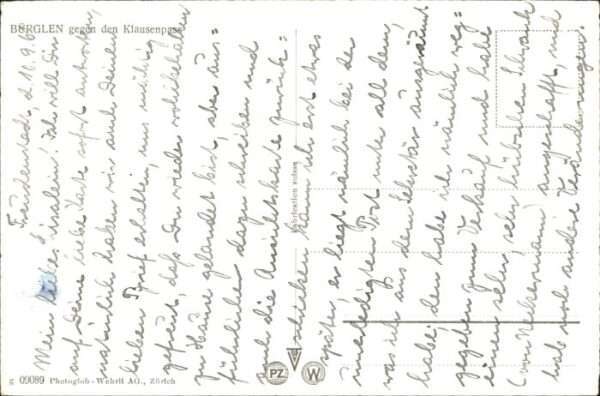 BÜRGLEN gegen den Klausenpass
Freudenstadt, d. 10. 9.
Mein liebes Lisslein! Ich will Dir
auf Deine liebe Karte sofort antworten,
natürlich haben wir auch Deinen
lieben Brief erhalten, uns mächtig
gefreut, dass Du wieder wohlbehalten
zu Hause gelandet bist, aber aus=
führlicher dazu schreiben und
und die Ansichtskarte zurück=
schicken kann ich erst etwas
später, es liegt nämlich bei der
unerledigten Post unter all dem,
was ich aus dem ausgeräumt
habe, den habe ich nämlich weg=
gegeben zum Verkauf und habe
einen sehr, sehr hübschen Schrank
(von Neckermann) angeschafft, und
hab noch andere Veränderungen.
g 09089 Photoglob-Wehrli AG., Zürich
PZ W